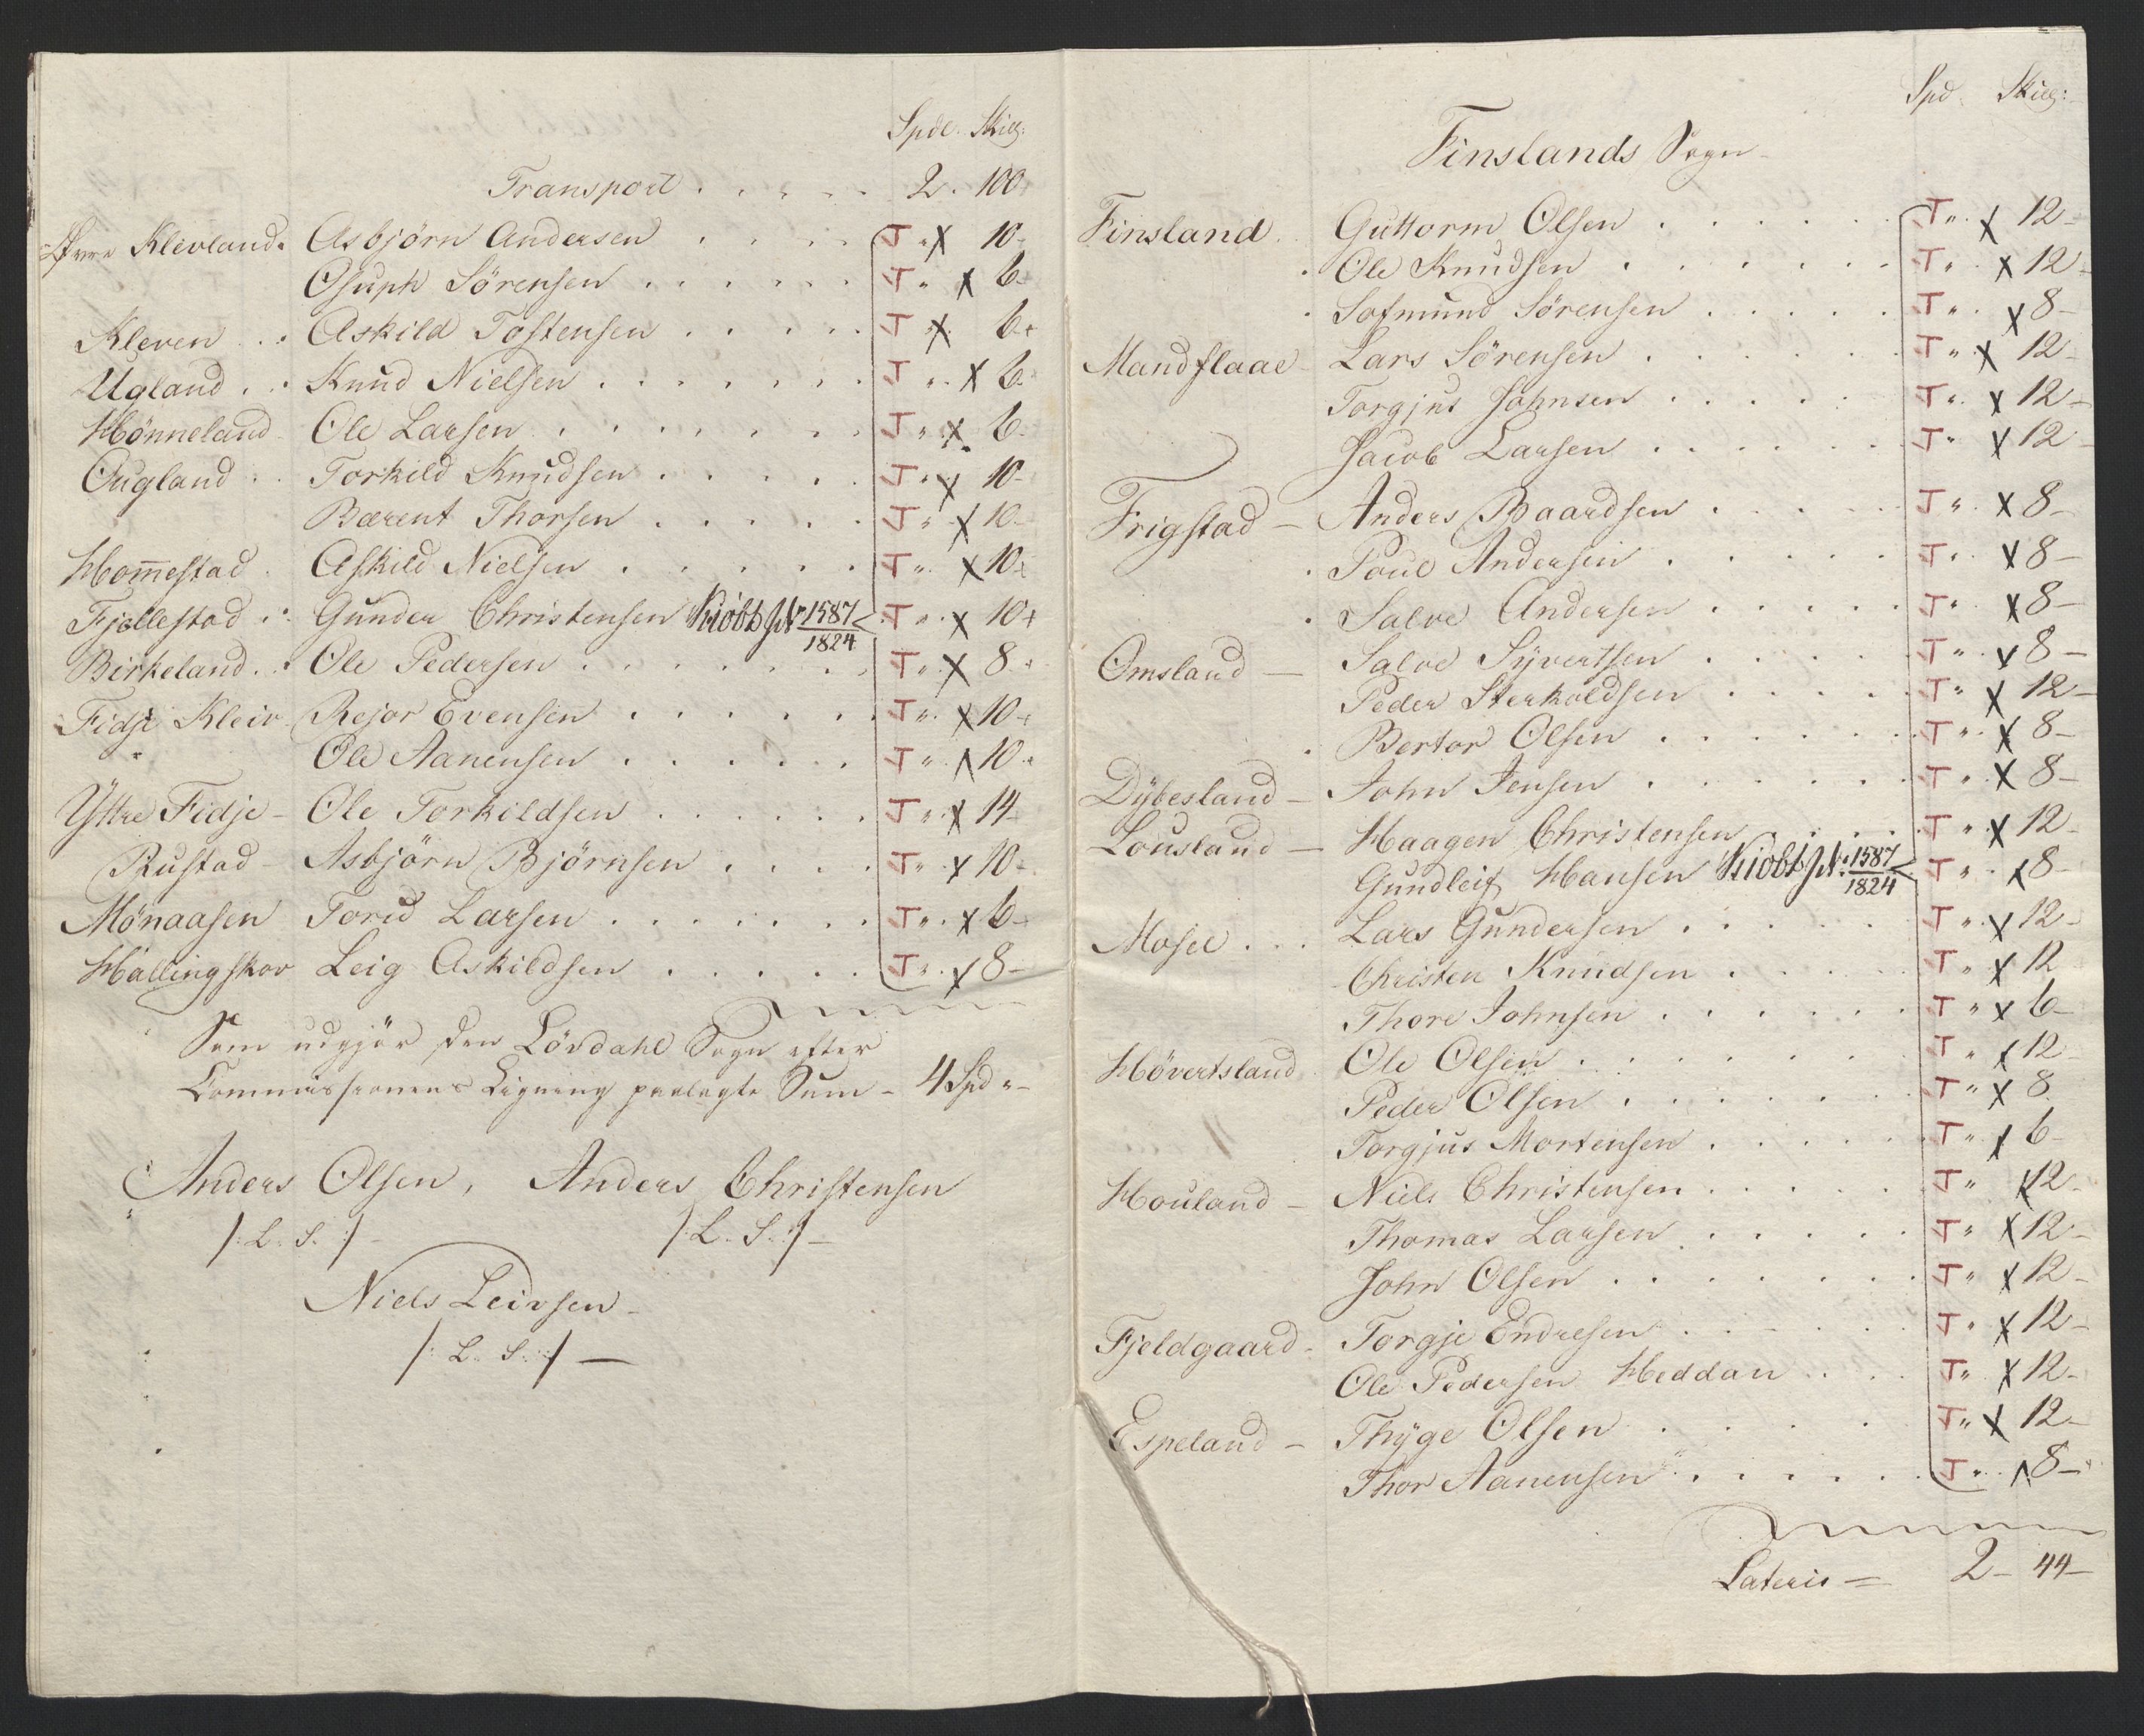 Spdl. Skillg:
Transport . . . . . 2. 100
Øvre Klevland. Asbjörn Andersen . . . . J " X 10-
Osuph Sörensen . . . . . . J " X 6-
Kleven . . Askild Tostensen . . . . . J " X 6-
Ugland . . Knud Nielsen . . . . . . . J " X 6-
Hönneland Ole Larsen . . . . . . . J " X 6-
Ougland . . Torkild Knudsen . . . . . J " X 10-
Bærent Thorsen . . . . . J " X 10-
Hom̅estad . Askild Nielsen . . . . . J " X 10-
Fjellestad . . Gunder Christensen Kiöbt J№ 1587/1824 J " X 10-
Birkeland . . Ole Pedersen . . . . . . J " X 8-
Fidje Kleiv Rejor Evensen . . . . . . J " X 10-
" Ole Aanensen . . . . . . J " X 10-
Yttre Fidje - Ole Torkildsen . . . . . . J " X 14
Rustad - Asbjörn Björnsen . . . . J " X 10-
Mönaasen Tored Larsen . . . . . . . J " X 6-
Hallingskov Leig Askildsen . . . . . J " X 8-
Som udgjör den Lövdahl Sogn efter
Commissionens Ligning paalagte Sum - 4 Spd "-
Anders Olsen, Anders Christensen
/: L. S. :/ - /: L. S. :/ -
Niels Leivsen -
/: L. S. :/ -
Spd. Skillg:
Finslands Sogn -
Finsland . Guttorm Olsen . . . . . J " X 12-
. Ole Knudsen . . . . . . J " X 12-
. Sofmund Sörensen . . . . . J " X 8-
Mandflaae - Lars Sörensen . . . . . . J " X 12-
Torgjus Johnsen . . . . . J " X 12-
Jacob Larsen . . . . . . J " X 12-
Frigstad - Anders Baardsen . . . . . J " X 8-
. Poul Andersen . . . . . J " X 8-
. Salve Andersen . . . . . J " X 8-
Omsland - Salve Syvertsen . . . . . J " X 8-
Peder Sterkoldsen . . . . . J " X 12-
. Bertor Olsen . . . . . . J " X 8-
Dybesland - John Jensen . . . . . . J " X 8-
Lousland - Haagen Christensen . . . . J " X 12-
Gundleif Hansen Kiöbt J№ 1587/1824 J " X 8-
Mosel . . . Lars Gundersen . . . . . J " X 12-
Christen Knudsen . . . . . J " X 12
Thore Johnsen . . . . . . J " X 6-
Hövertsland Ole Olsen . . . . . . . J " X 12-
Peder Olsen . . . . . . . J " X 8.
Torgjus Mortensen . . . . . J " X 6-
Houland - Niels Christensen . . . . . J " X 12-
Thomas Larsen . . . . . . J " X 12-
John Olsen . . . . . . . J " X 12-
Fjeldgaard - Torgje Endresen . . . . . J " X 12-
Ole Pedersen Heddan . . . J " X 12-
Espeland - Thyge Olsen . . . . . J " X 12-
Thor Aanensen . . . . . . J " X 8-
Lateris = 2- 44-